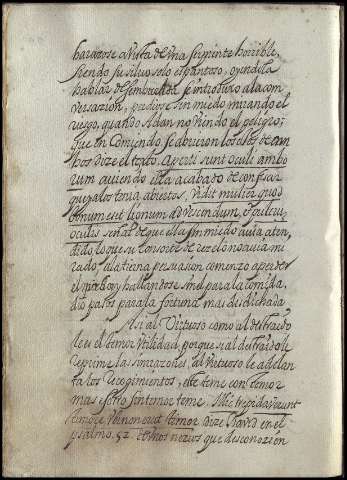 barazose a vista de una serpiente horrible,
siendo su silvo solo espantoso, oyendola
hablar de sembuelta se introduxo a la con
versazion, perdiose sin miedo mirando el
riesgo, quando Adan no viendo el peligro;
que en Comiendo se abrieron los ojos de am
bos dize el texto. aperti sunt oculi ambo
rum auiendo ella acabado de confesar
que ya los tenia abiertos, Vidit mulier quod
bonum esset lignum ad vescendum, et pulcru
oculis señal de que ella sin miedo auia aten
dido lo que su consorte de rezelo no auia mi
rado, a la tierna persuasion comenzo a perder
el miedo y hallandose sin el para la comida,
dio pasos para la fortuna mas desdichada
Asi al Virtuoso como al destraido
le es el temor utilidad, porque si al destraido le
reprime las sinrazones, al virtuoso le adelan
ta los recogimientos, este teme con temor
mas estotro sin temor teme. Illic trepidauerunt
timore, vbi non erat timor dize Dauid en el
psalmo. 52. de unos nezios que desconozien